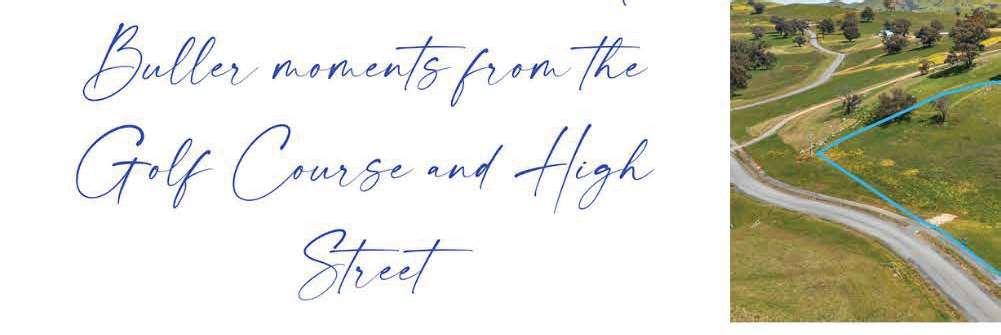 Buller moments from the
Golf Course and High
Street